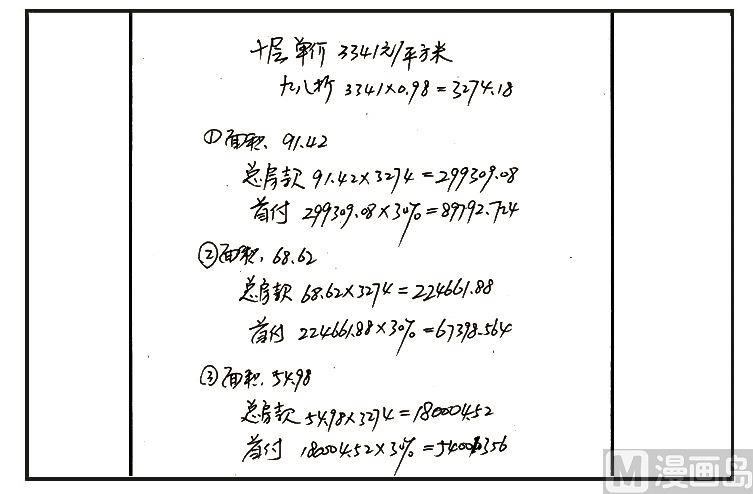 十层单价 3341元/平方米
九八折 3341×0.98=3274.18
①面积. 91.42
总房款 91.42×3274=299309.08
首付 299309.08×30%=89792.724
②面积. 68.62
总房款 68.62×3274=224661.88
首付 224661.88×30%=67398.564
③面积. 54.98
总房款 54.98×3274=180004.52
首付 180004.52×30%=54001.356
M漫画岛